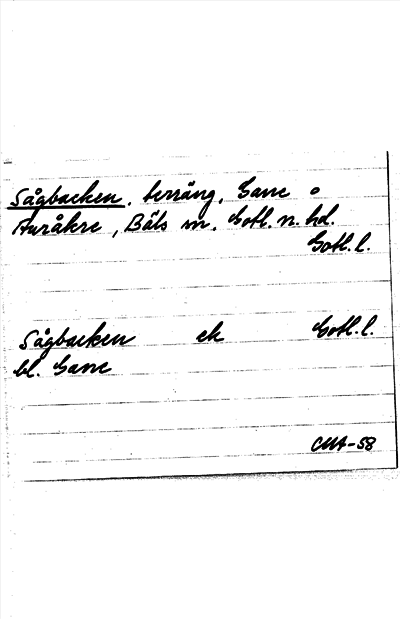 Sågbacken, terräng, Gane o
Furåkre, Bäls sn. Gotl. n. hd.
Gotl. l.
Sågbacken ek Gotl. l.
bl. Gane
CMA-58